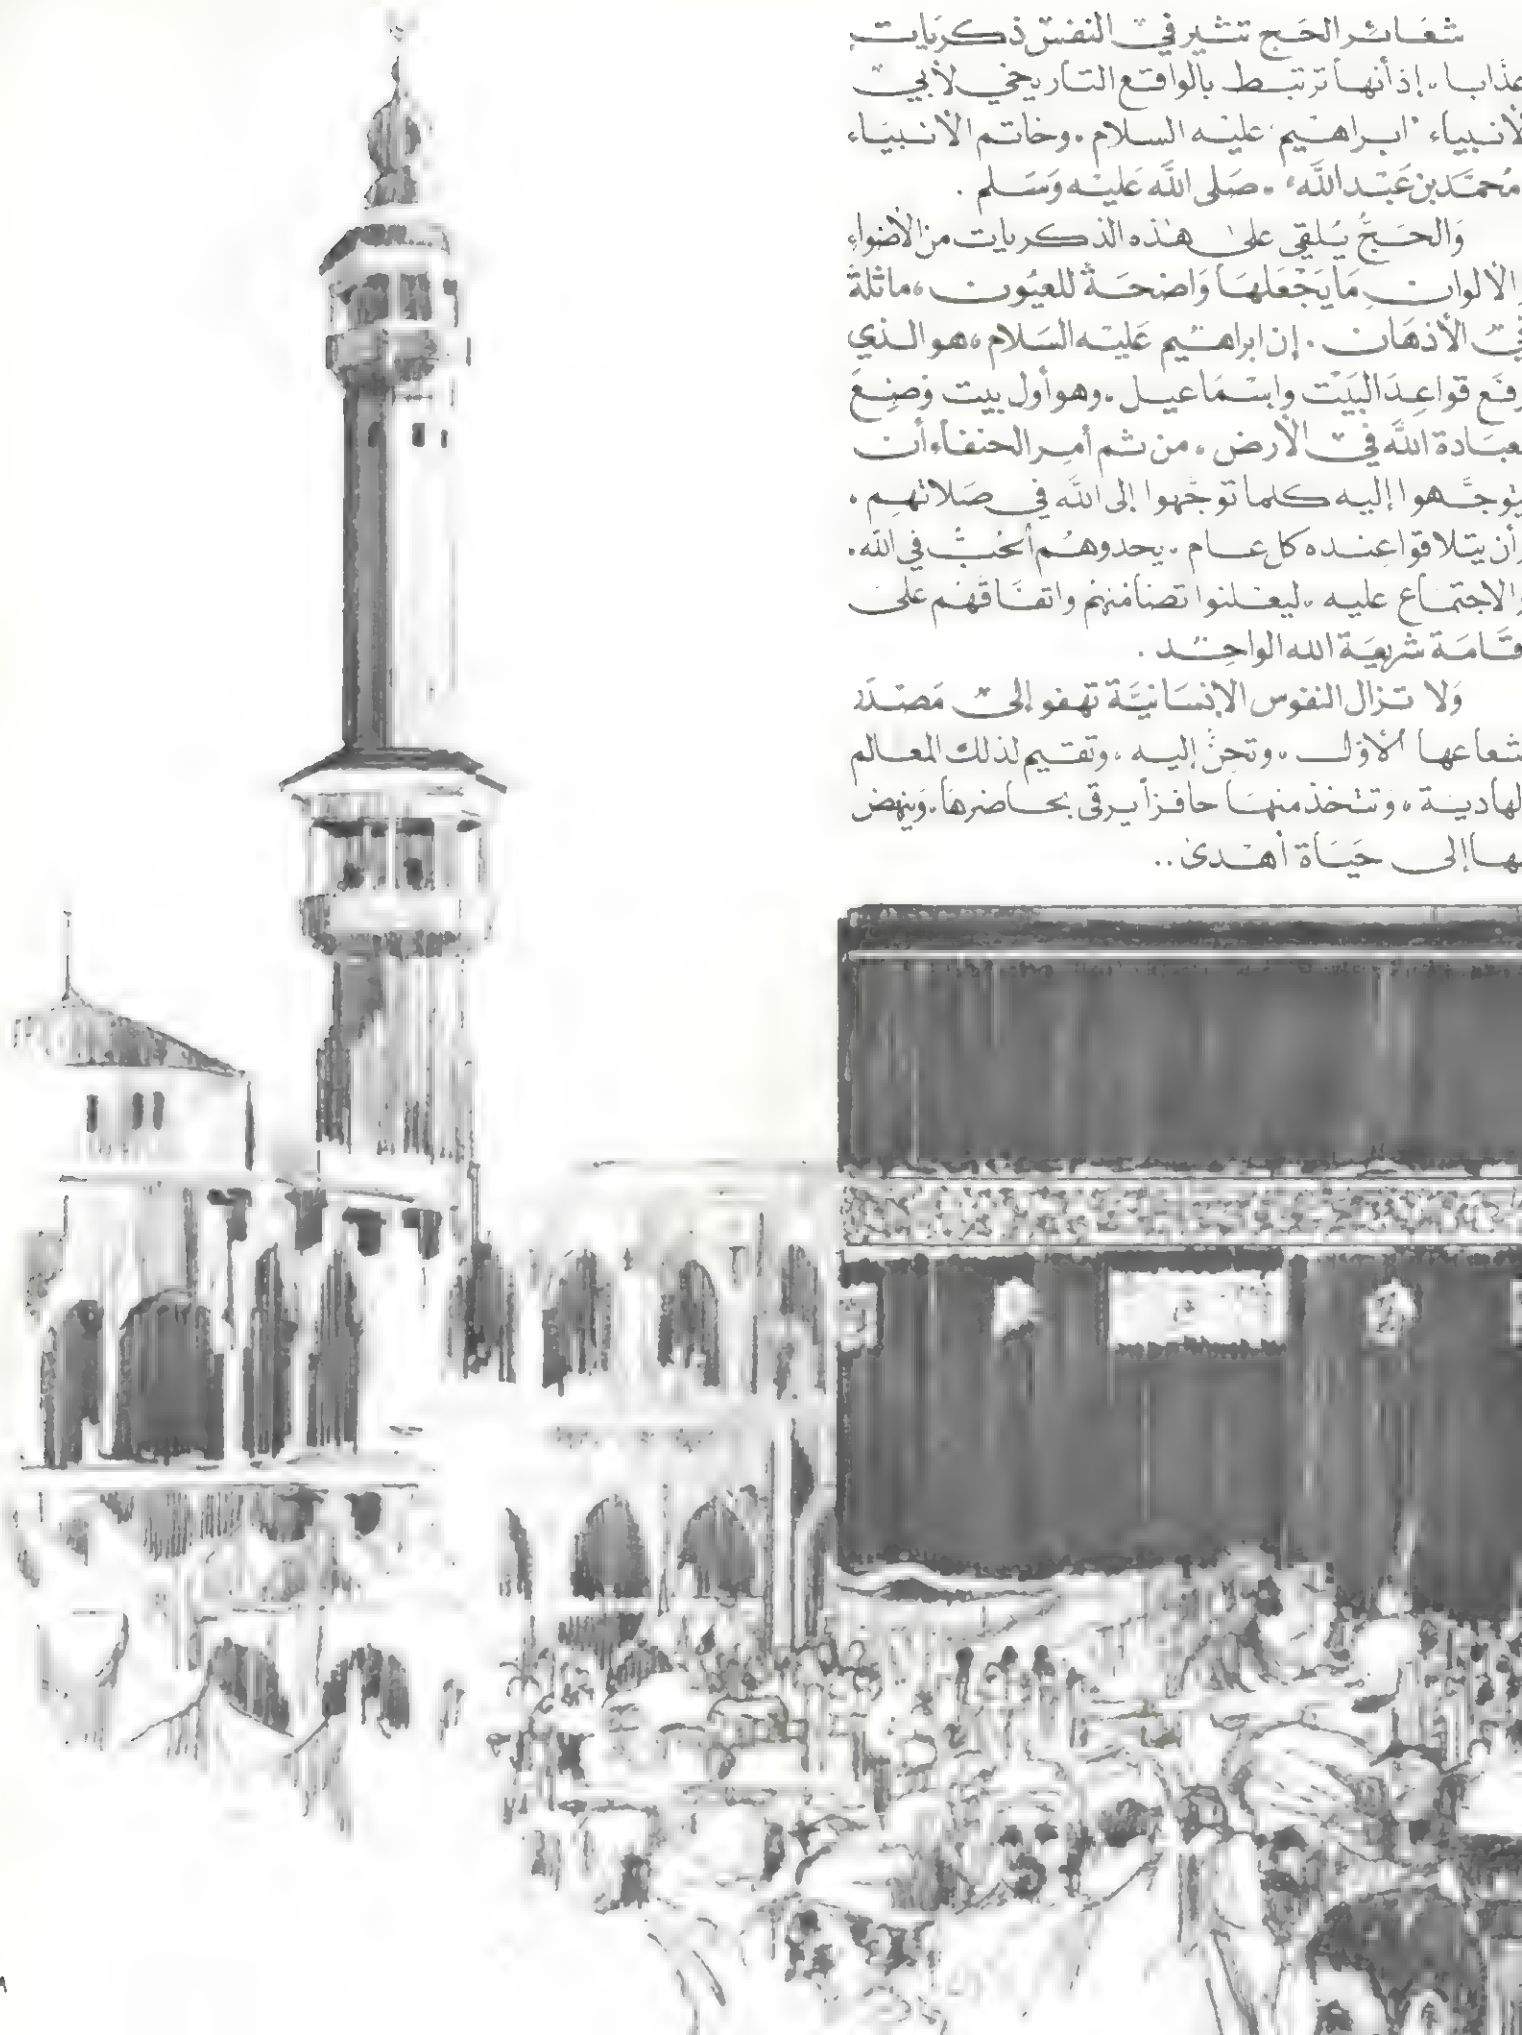 شعَائر الحَج تثير في النفس ذكريَات
عذابا، إذ أنها ترتبط بالواقع التاريخي لأبي
الأنبياء "ابراهيم" عليه السلام، وخاتم الأنبيَاء
"محمَّد بن عَبد اللَّه"، صَلى اللَّه عَليه وَسَلم.
وَالحَجُّ يُلقي على هَذه الذكريات من الأضواءِ
والألوانِ مَا يَجْعَلهَا وَاضحَةً للعيُون، ماثلة
في الأذهَان. إن ابراهيم عَليه السَلام، هو الذي
رفَع قواعِدَ البَيْت وابسْمَاعيل، وهو أول بيت وُضِعَ
لعبَادة اللَّه في الأرض، من ثم أمِر الحنفاء أن
يتوجَّهوا إليه كلما توجَّهوا إلى اللَّه في صَلاتهِم،
وأن يتلاقوا عِنده كل عام، يحدوهُم الحُبُّ في اللَّه،
والاجتماع عليه، ليعلنوا تضامنهم واتفَاقهم على
إقَامَة شريعَة الله الواحِد.
وَلا تزال النفوس الإنسَانيَّة تهفو إلى مَصْدَر
شعاعها الأوَّل، وتحِنُّ إليه، وتقيم لذلك المعَالم
الهادية، وتتخذ منهَا حافزاً يرقى بحَاضرهَا، وَينهض
بها إلى حَيَاة أهدى..